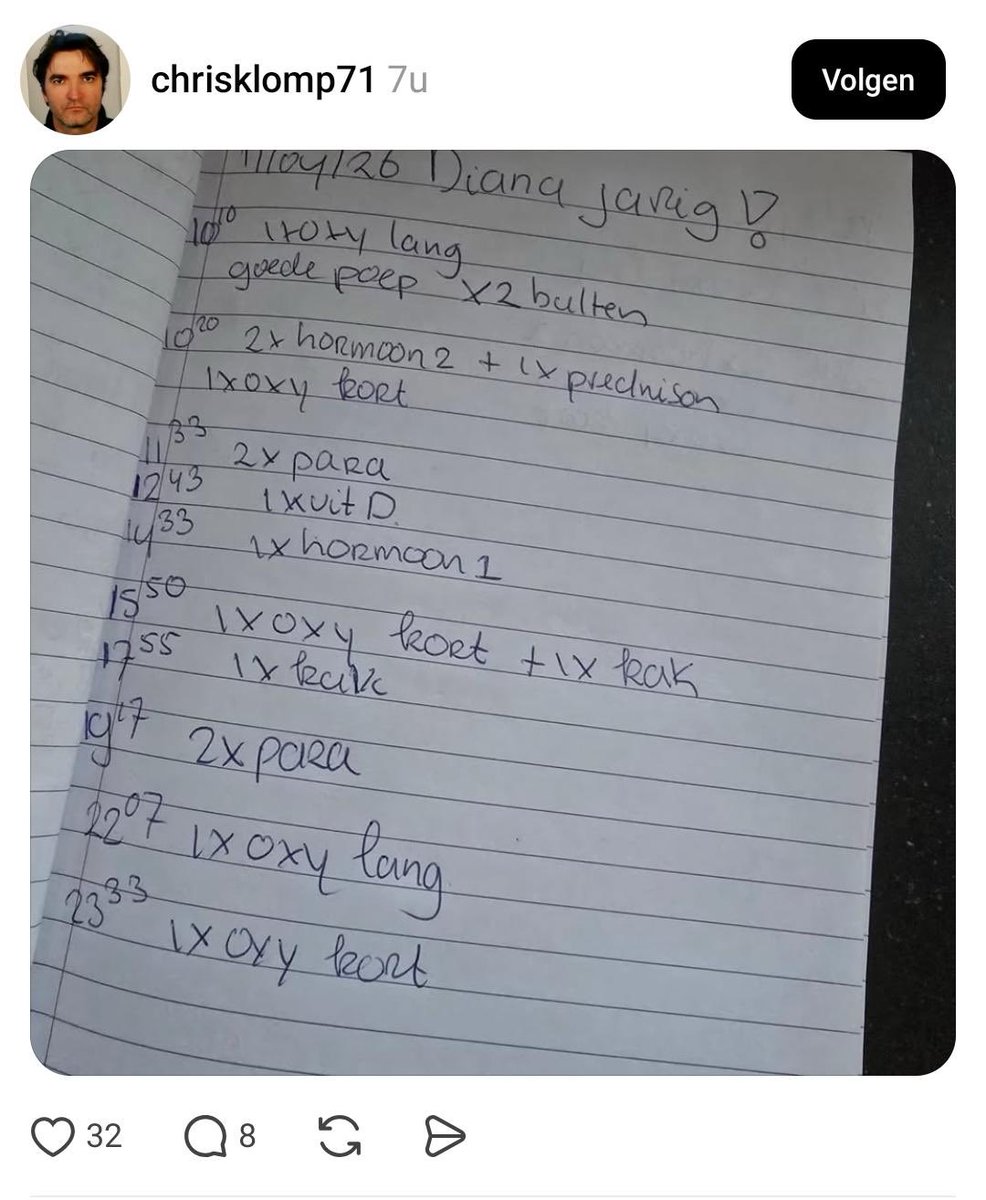 chrisklomp71 7u
Volgen
/04/26 Diana jarig!
10¹⁰ 1xoxy lang
goede poep x2 bulten
10²⁰ 2x hormoon 2 + 1x prednison
1xoxy kort
11³³ 2x para
12⁴³ 1x vit D.
14³³ 1x hormoon 1
15⁵⁰ 1x oxy kort + 1x kak
17⁵⁵ 1x kak
19¹⁷ 2x para
22⁰⁷ 1x oxy lang
23³³ 1x oxy kort
32 8